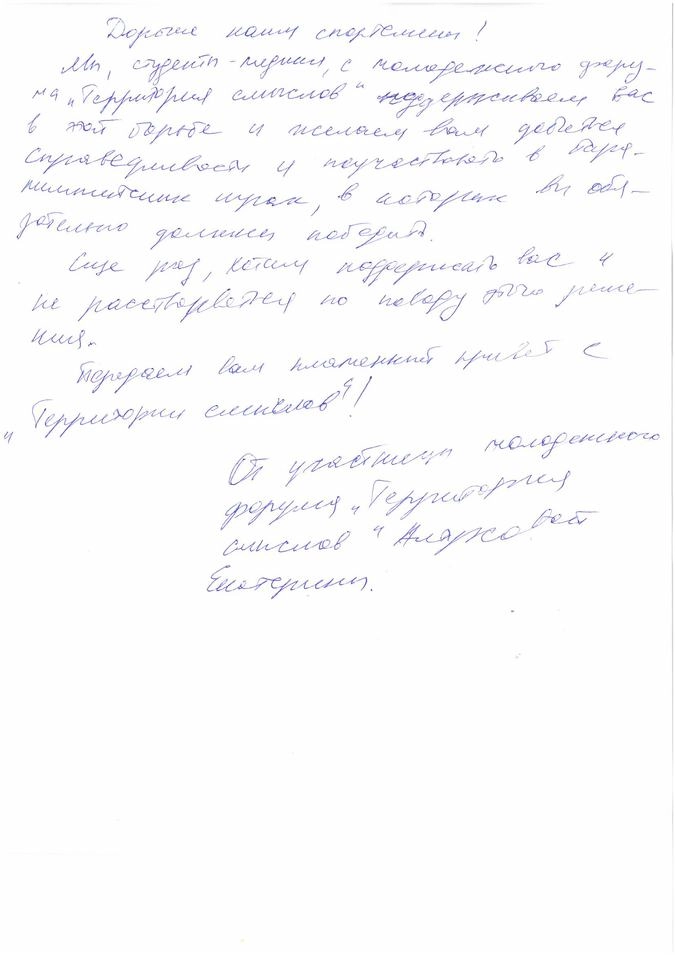 Дорогие наши спортсмены!
Мы, студенты-медики, с молодежного фору-
ма "Территория смыслов" поддерживаем вас
в этой борьбе и желаем вам добиться
справедливости и поучаствовать в Пара-
лимпийских играх, в которых вы обя-
зательно должны победить.
Еще раз, хотим поддержать вас и
не расстраивайтесь по поводу этого реше-
ния.
Передаем вам пламенный привет с
"Территории смыслов"!
От участницы молодежного
форума "Территория
смыслов"
Екатерины.